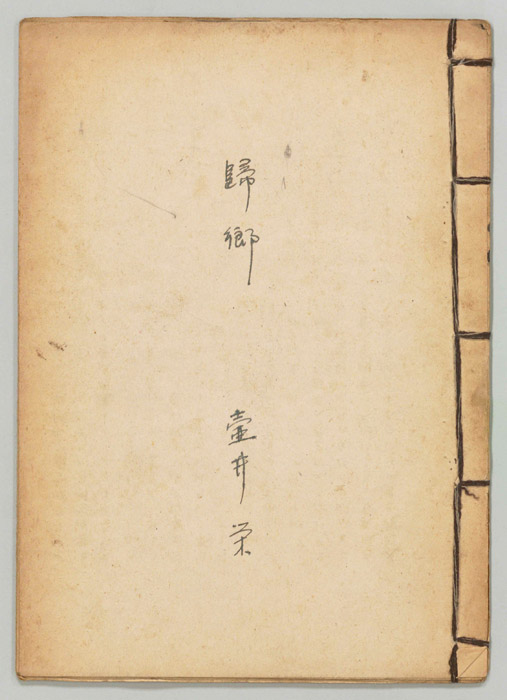 歸鄉 壷井栄